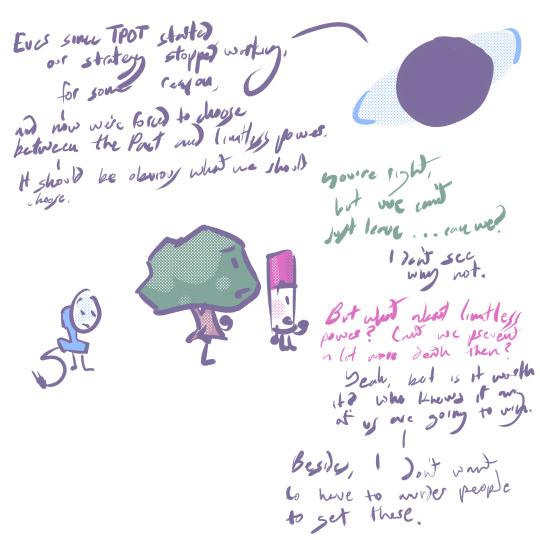 Ever since TPOT started
our strategy stopped working,
for some reason,
and now we're forced to choose
between the Pact and limitless power.
It should be obvious what we should
choose.
you're right,
but we can't
just leave... can we?
I don't see
why not.
But what about limitless
power? Can't we prevent
a lot more death then?
Yeah, but is it worth
it? who knows if any
of us are going to win.
Besides, I don't want
to have to murder people
to get there.